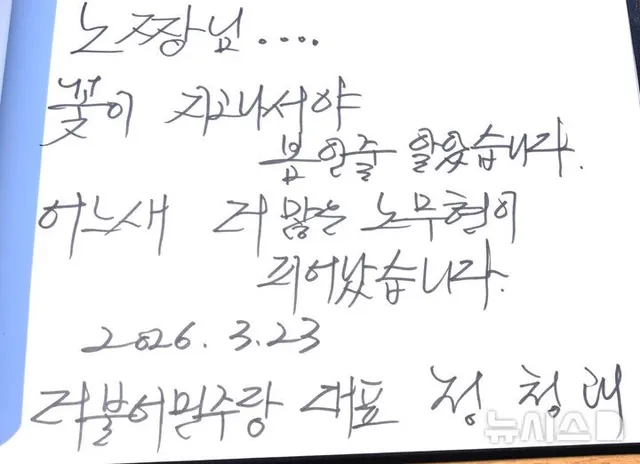 노짱님....
꽃이 지고나서야
봄인줄 알았습니다.
어느새 더 많은 노무현이
피어났습니다.
2026. 3. 23
더불어민주당 대표 정청래
뉴시스